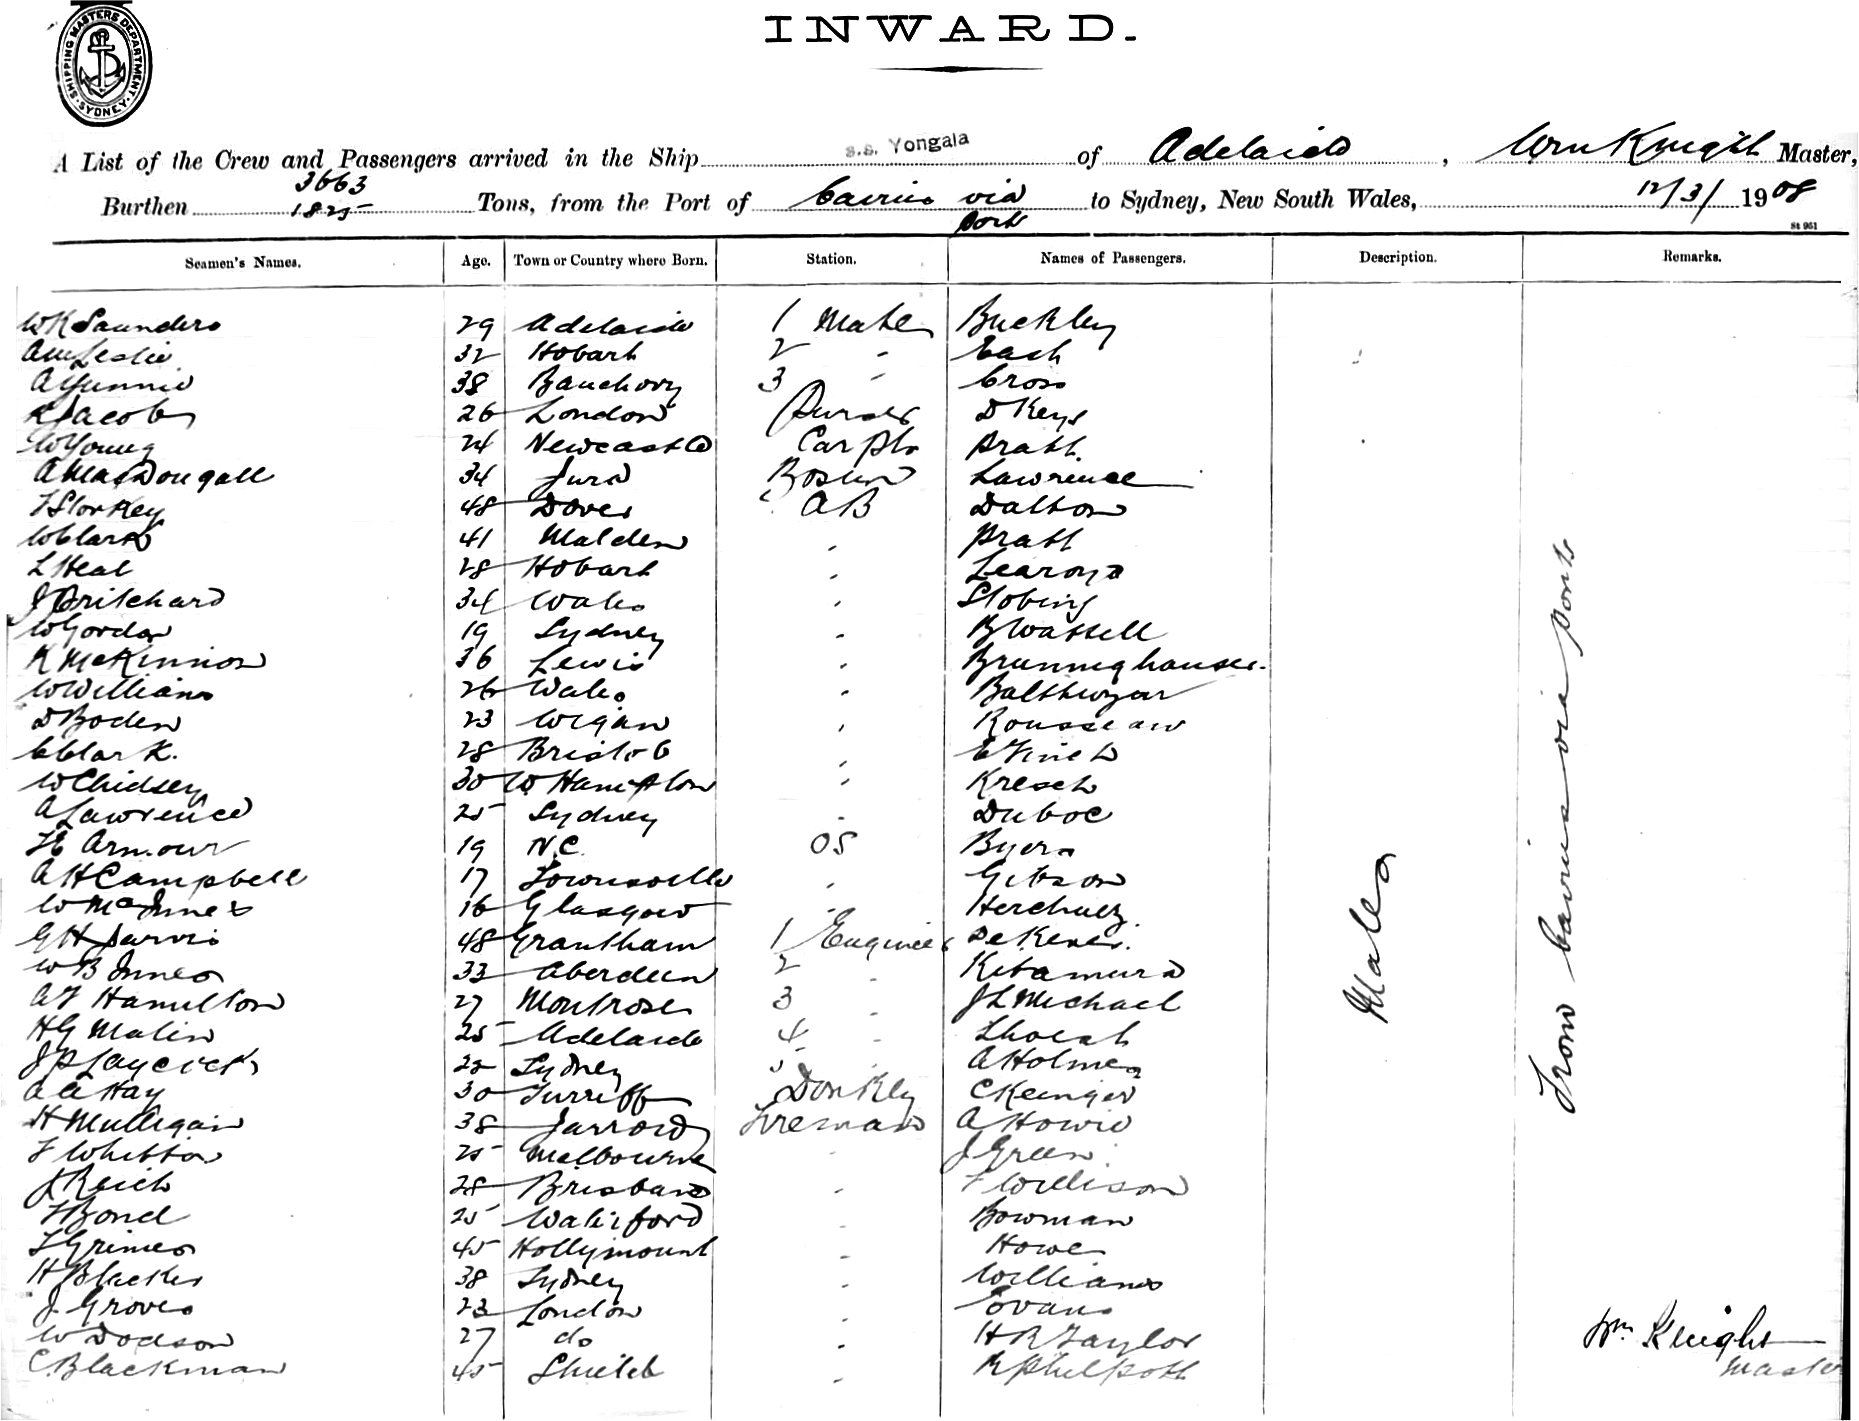 INWARD.
SHIPPING MASTERS DEPARTMENT
SYDNEY
A List of the Crew and Passengers arrived in the Ship s.s. Yongala of Adelaide, Wm Knight Master,
3663
Burthen 1825 Tons, from the Port of Cairns via to Sydney, New South Wales, 12/3/ 1908
Ports
St 951
Seamen's Names. Age. Town or Country where Born. Station. Names of Passengers. Description. Remarks.
WK Saunders 29 Adelaide 1 Mate Buckley
AM Leslie 32 Hobart 2 " Cash
38 Banchory 3 " Cross
R Jacobs 26 London Purser D Keys
W Young 24 Newcastle Carptr Pratt
A MacDougall 34 Jura Bosun Lawrence
F Storkey 48 Dover AB Dalton
W Clark 41 Malden " Pratt
L Heal 28 Hobart " Learoyd
J Pritchard 34 Wales "
W Gordon 19 Sydney " B Wassell
K McKinnon 36 Lewis "
W Williams 26 Wales "
D Boden 23 Wigan " Rousseau
C Clark. 28 Bristol " E Finch
W Chidsey 30 W Hampton " Kresch
A Lawrence 25 Sydney " Duboc
Armour 19 N.C. OS Byers
A H Campbell 17 Townsville " Gibson
W McInnes 16 Glasgow "
G H Jarvis 48 Grantham 1 Engineer
W B Innes 33 Aberdeen 2 " Kitamura
A F Hamilton 27 Montrose 3 " J L Michael
H G Malin 25 Adelaide 4 "
J P Laycock Sydney 5 A Holmes
A A Hay 30 Turriff Donkey
H Mulligan 38 Jarrow Fireman A Howie
F Whitton 25 Melbourne " J Green
J Reich 28 Brisbane " F Willison
F Bond 25 Waterford " Bowman
T Grimes 45 Hollymount " Howe
H Blacker 38 Sydney " Williams
J. Groves 23 London " Evans
W Dodson 27 do " H R Taylor
C Blackman 45 Shields " R Philpott
Males
From Cairns via ports
Wm Knight
Master